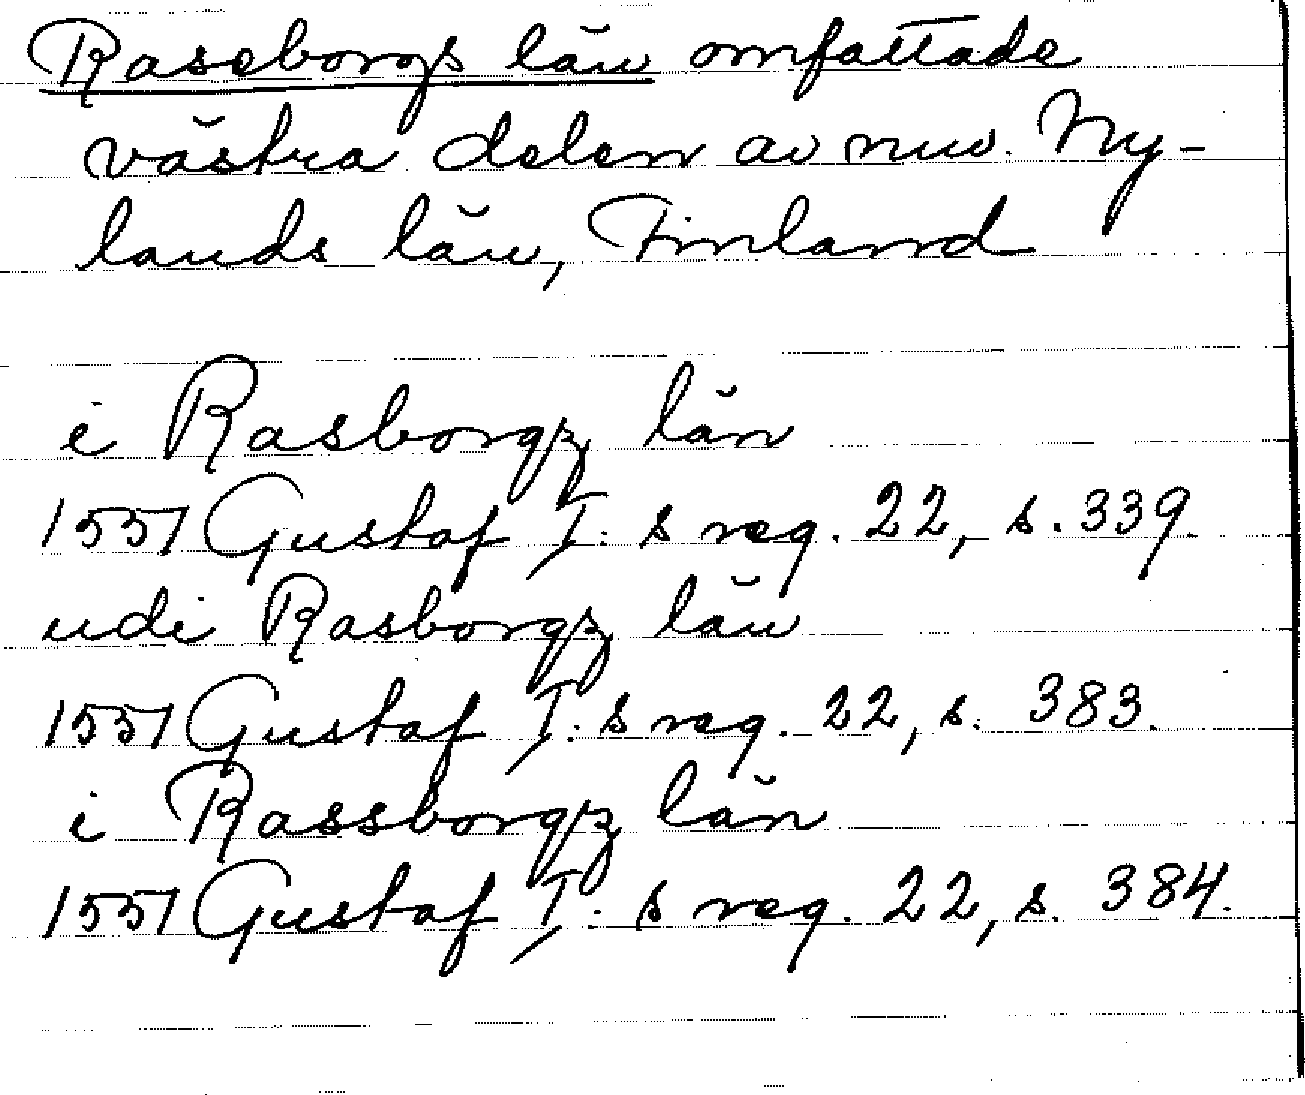 Raseborgs län omfattade
västra delen av nuv. Ny-
lands län, Finland
i Rasborgz län
1551 Gustaf I:s reg. 22, s. 339.
udi Rasborgz län
1551 Gustaf I:s reg. 22, s. 383.
i Rassborgz län
1551 Gustaf I:s reg. 22, s. 384.